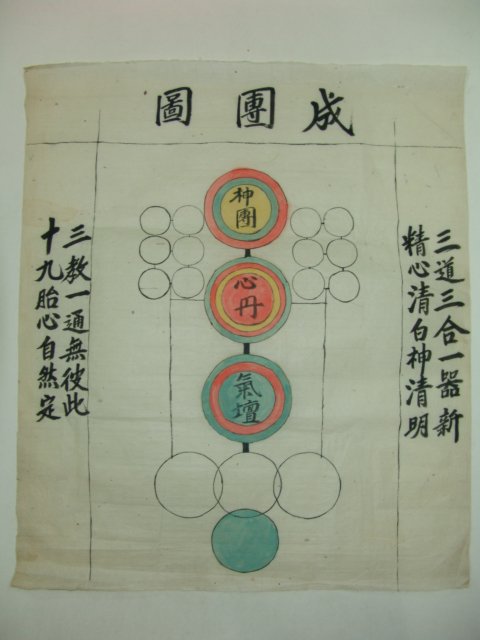 成團圖
三道三合一器新
精心清白神清明
神團
心丹
氣壇
三教一通無彼此
十九胎心自然定